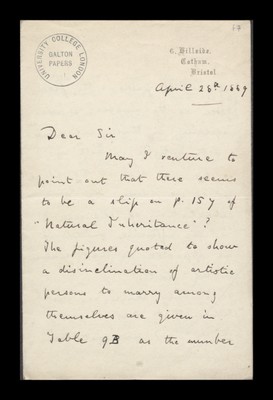 17
UNIVERSITY COLLEGE LONDON
GALTON
PAPERS
6, Hillside,
Cotham,
Bristol
April 28th 1889
Dear Sir
May I venture to
point out that there seems
to be a slip on p. 157 of
"Natural Inheritance"?
The figures quoted to show
a disinclination of artistic
persons to marry among
themselves are given in
Table 9B as the number